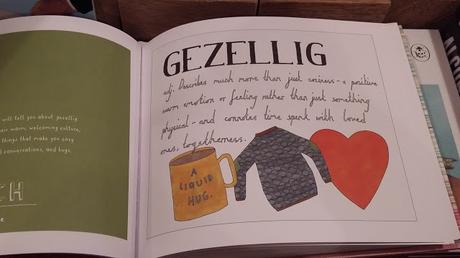 will tell you about
warm, welcoming culture,
things that make you
conversations, and hugs.
H
GEZELLIG
adj: Describes much more than just cosiness - a positive
warm emotion or feeling rather than just something
physical - and connotes time spent with loved
ones, togetherness.
A
LIQUID
HUG.